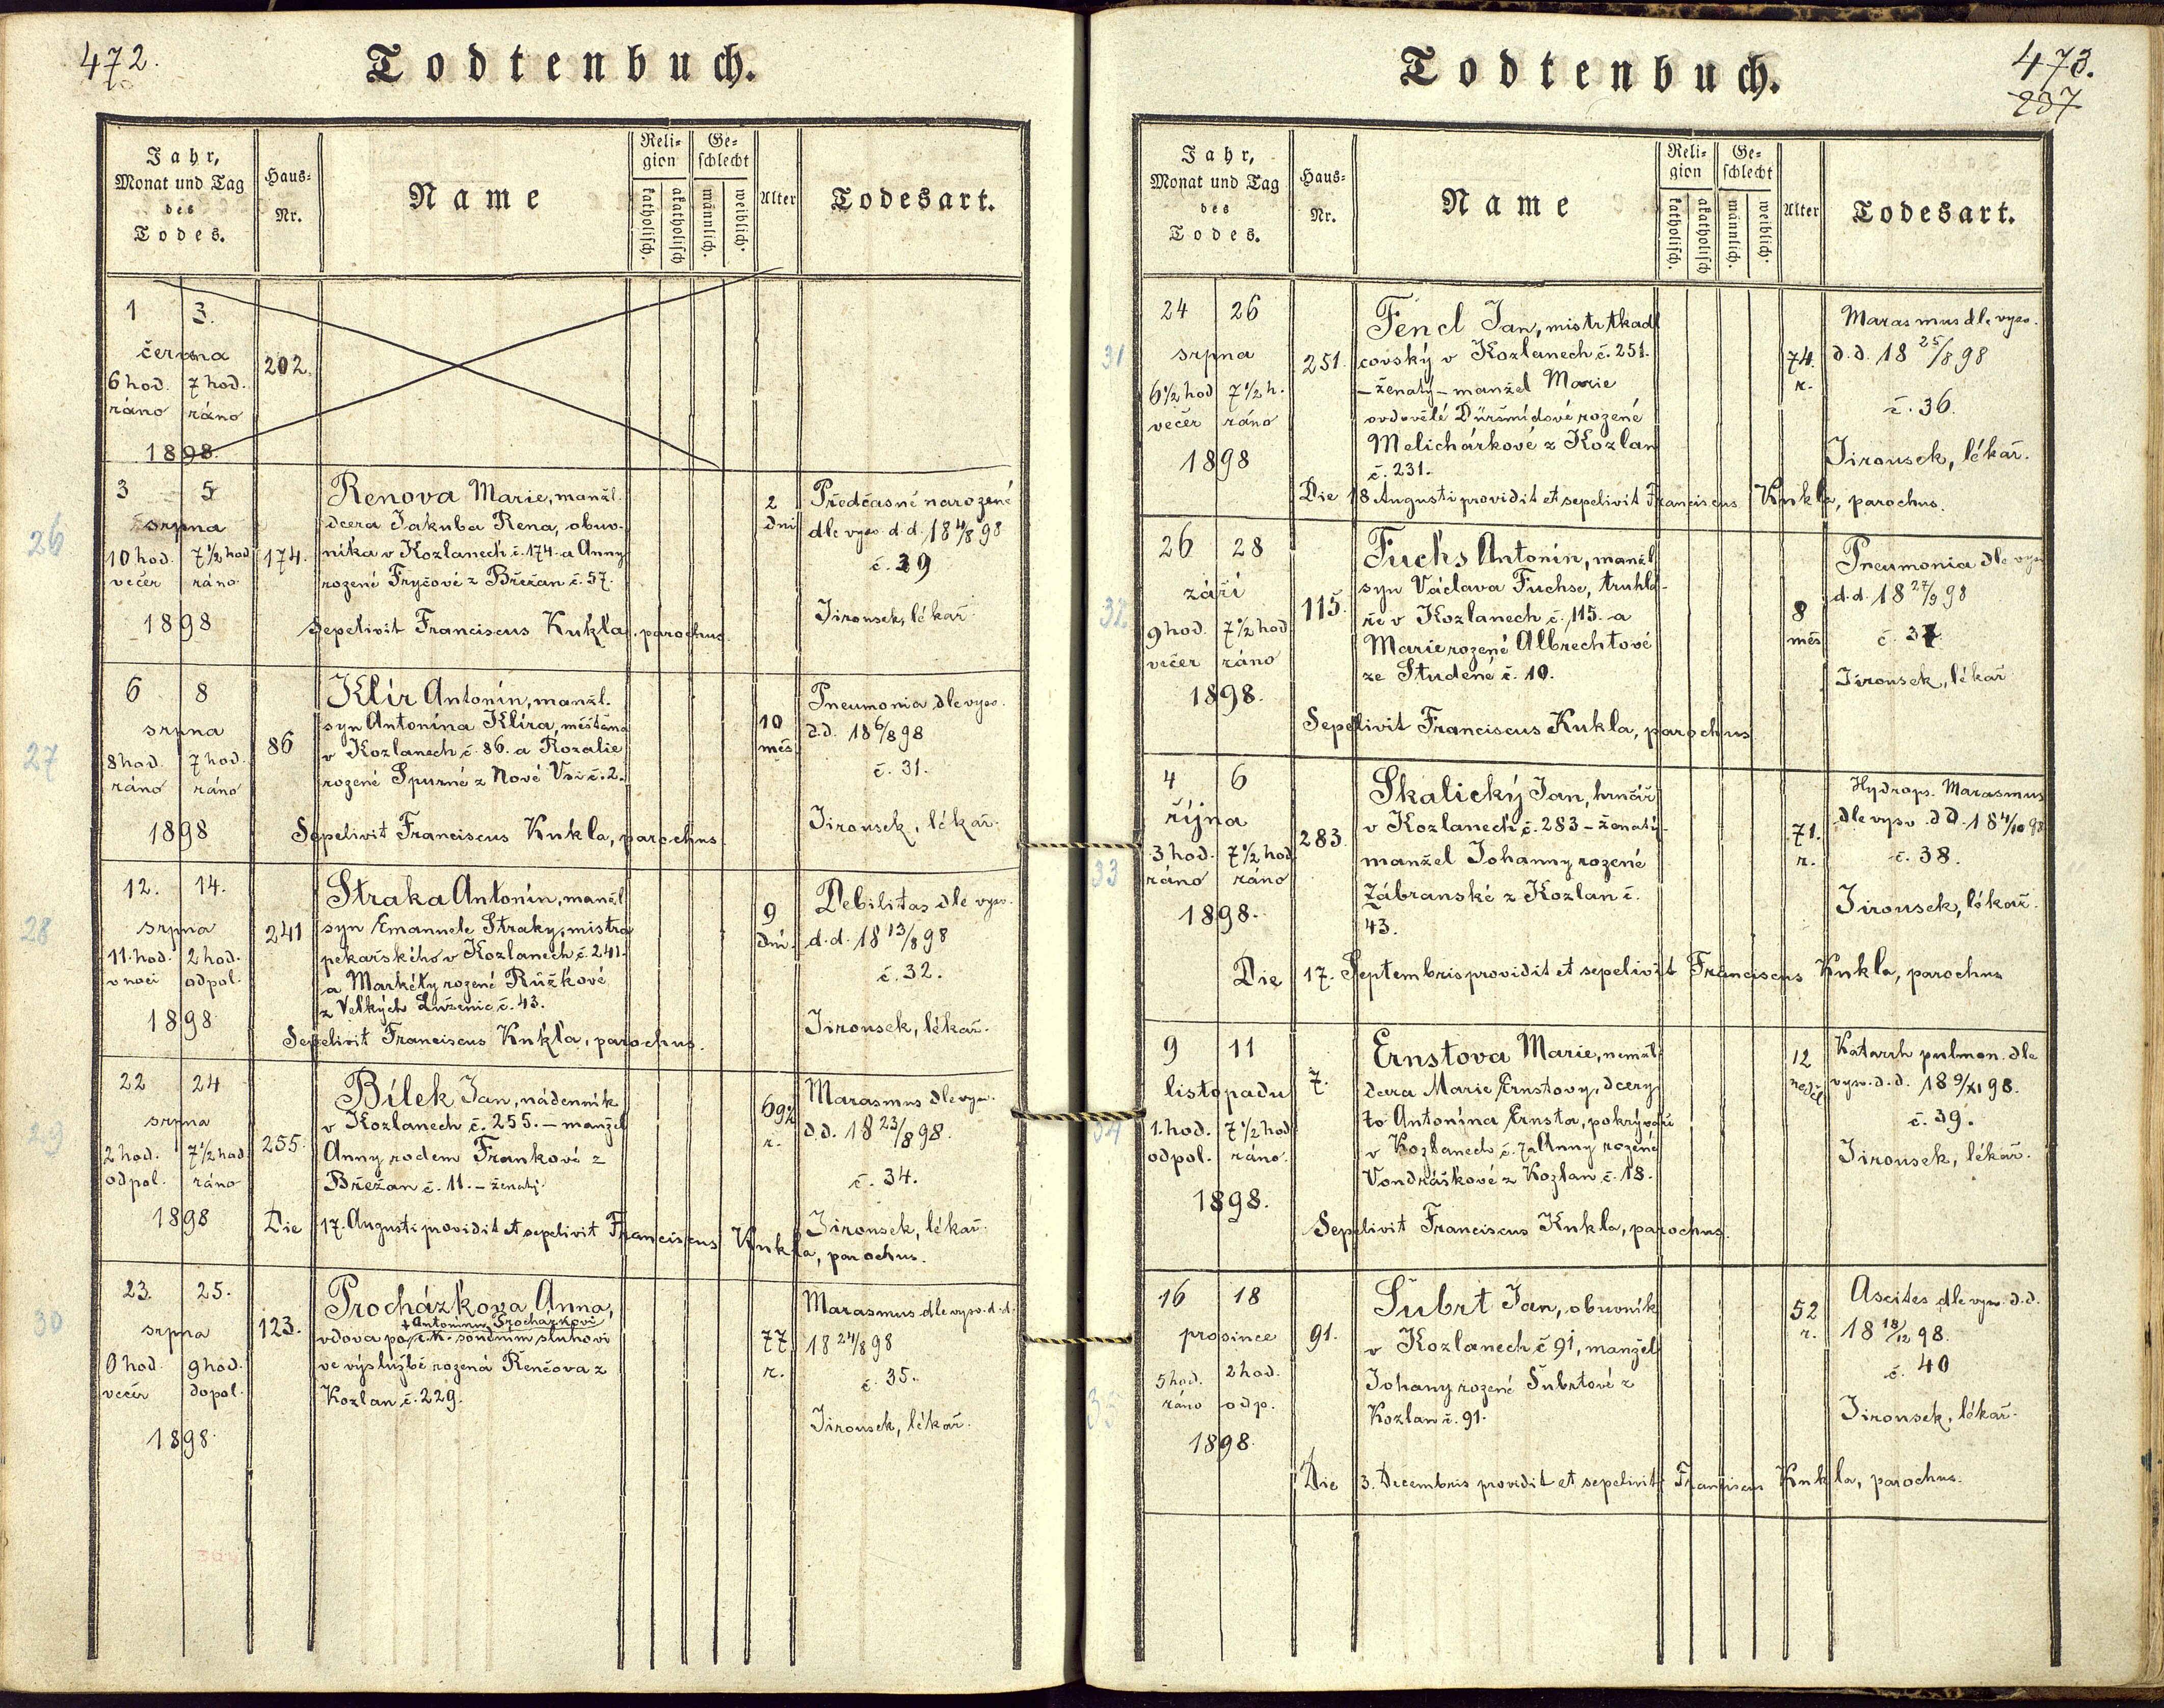 472.
Todtenbuch.
Jahr,
Monat und Tag
des
Todes.
Haus-
Nr.
Name
Reli-
gion
katholisch.
akatholisch
Ge-
schlecht
männlich.
weiblich.
Alter
Todesart.
1 3.
června
6 hod. 7 hod.
ráno ráno
1898.
202.
26
3 5
srpna
10 hod. 7 1/2 hod
večer ráno
1898
174.
Renova Marie, manžl.
dcera Jakuba Rena, obuv-
níka v Kozlanech č. 174. a Anny
rozené Fryčové z Břežan č. 57.
Sepelivit Franciscus Kukla, parochus.
2
dni
Předčasně narozené
dle vysv. d.d. 18 4/8 98
č. 29
Jirousek, lékař
27
6 8
srpna
8 hod. 7 hod.
ráno ráno
1898
86
Klír Antonín, manžl.
syn Antonína Klíra, měštěna
v Kozlanech č. 86. a Rozalie
rozené Spurné z Nové Vsi č. 2.
Sepelivit Franciscus Kukla, parochus
10
měs.
Pneumonia dle vysv.
d.d. 18 6/8 98
č. 31.
Jirousek, lékař.
28
12. 14.
srpna
11. hod. 2 hod.
v noci odpol.
1898
241
Straka Antonín, manžl
syn Emanuele Straky, mistra
pekařského v Kozlanech č. 241.
a Markéty rozené Růžkové
z Velkých Luženic č. 43.
Sepelivit Franciscus Kukla, parochus.
9
dní.
Debilitas dle vysv.
d.d. 18 13/8 98
č. 32.
Jirousek, lékař.
29
22 24
srpna
2 hod. 7 1/2 hod
odpol. ráno
1898
255.
Bílek Jan, nádenník
v Kozlanech č. 255. – manžel
Anny rodem Frankové z
Břežan č. 11. – ženatý.
Die 17. Augusti providit et sepelivit Franciscus Kukla, parochus.
69 1/2
r.
Marasmus dle vysv.
d.d. 18 23/8 98.
č. 34.
Jirousek, lékař.
30
23. 25.
srpna
6 hod. 9 hod.
večer dopol.
1898.
123.
Procházkova Anna,
† Antonínu Procházkovi
vdova po c.k. soudním sluhovi
ve výslužbě rozená Renčova z
Kozlan č. 229.
77
r.
Marasmus dle vysv. d.d.
18 24/8 98
č. 35.
Jirousek, lékař.
473.
237
Todtenbuch.
Jahr,
Monat und Tag
des
Todes.
Haus-
Nr.
Name
Reli-
gion
katholisch.
akatholisch
Ge-
schlecht
männlich.
weiblich.
Alter
Todesart.
31
24 26
srpna
6 1/2 hod 7 1/2 h.
večer ráno
1898
251.
Fencl Jan, mistr tkadl
covský v Kozlanech č. 251.
– ženatý – manžel Marie
ovdovělé Düršmídové rozené
Melichárkové z Kozlan
č. 231.
Die 18 Augusti providit et sepelivit Franciscus Kukla, parochus.
74.
r.
Marasmus dle vysv.
d.d. 18 25/8 98
č. 36.
Jirousek, lékař.
32
26 28
září
9 hod. 7 1/2 hod
večer ráno
1898.
115.
Fuchs Antonín, manžl
syn Václava Fuchse, truhlá-
ře v Kozlanech č. 115. a
Marie rozené Albrechtové
ze Studené č. 10.
Sepelivit Franciscus Kukla, parochus
8
měs
Pneumonia dle vysv
d.d. 18 27/9 98
č. 37.
Jirousek, lékař
33
4 6
října
3 hod. 7 1/2 hod
ráno ráno
1898.
283.
Skalický Jan, hrnčíř
v Kozlanech č. 283 – ženatý –
manžel Johanny rozené
Zábranské z Kozlan č.
43.
Die 17. Septembris providit et sepelivit Franciscus Kukla, parochus
71.
r.
Hydrops. Marasmus
dle vysv. d.d. 18 4/10 98
č. 38.
Jirousek, lékař.
34
9 11
listopadu
1. hod. 7 1/2 hod
odpol. ráno.
1898.
7.
Ernstova Marie, nemžl.
dcera Marie Ernstovy, dcery
to Antonína Ernsta, pokrývače
v Kozlanech č. 7 a Anny rozené
Vondráškové z Kozlan č. 18.
Sepelivit Franciscus Kukla, parochus.
12
neděl
Katarrh pulmon. dle
vysv. d.d. 18 9/XI 98.
č. 39.
Jirousek, lékař.
35
16 18
prosince
5 hod. 2 hod.
ráno odp.
1898.
91.
Šubrt Jan, obuvník
v Kozlanech č 91, manžel
Johany rozené Šubrtové z
Kozlan č. 91.
Die 3. Decembris providit et sepelivit Franciscus Kukla, parochus.
52
r.
Ascites dle vysv. d.d.
18 18/12 98.
č. 40
Jirousek, lékař.